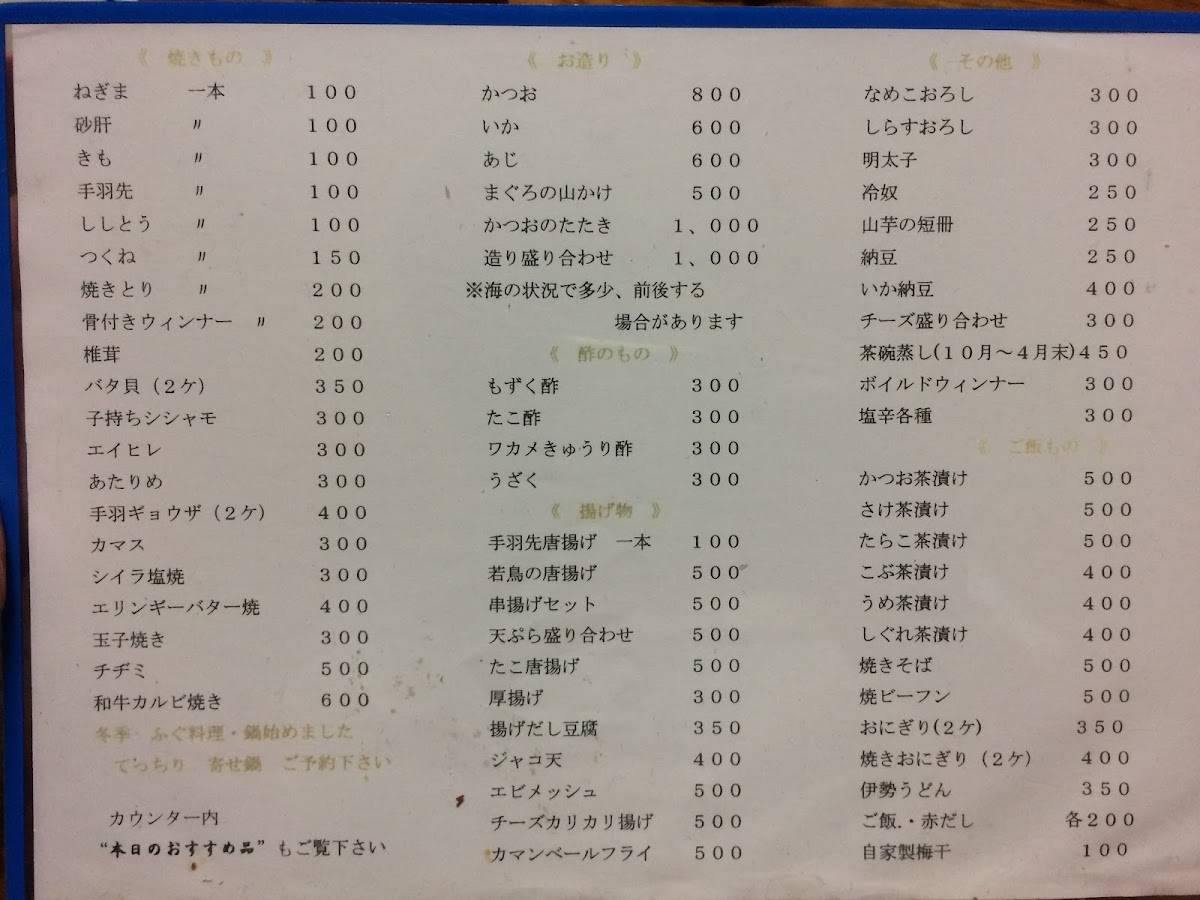 《　焼きもの　》
ねぎま　一本　１００
砂肝　〃　１００
きも　〃　１００
手羽先　〃　１００
ししとう　〃　１００
つくね　〃　１５０
焼きとり　〃　２００
骨付きウィンナー　〃　２００
椎茸　２００
バタ貝（２ケ）　３５０
子持ちシシャモ　３００
エイヒレ　３００
あたりめ　３００
手羽ギョウザ（２ケ）　４００
カマス　３００
シイラ塩焼　３００
エリンギーバター焼　４００
玉子焼き　３００
チヂミ　５００
和牛カルビ焼き　６００
冬季　ふぐ料理・鍋始めました
てっちり　寄せ鍋　ご予約下さい
カウンター内
“本日のおすすめ品”もご覧下さい
《　お造り　》
かつお　８００
いか　６００
あじ　６００
まぐろの山かけ　５００
かつおのたたき　１、０００
造り盛り合わせ　１、０００
※海の状況で多少、前後する
場合があります
《　酢のもの　》
もずく酢　３００
たこ酢　３００
ワカメきゅうり酢　３００
うざく　３００
《　揚げ物　》
手羽先唐揚げ　一本　１００
若鳥の唐揚げ　５００
串揚げセット　５００
天ぷら盛り合わせ　５００
たこ唐揚げ　５００
厚揚げ　３００
揚げだし豆腐　３５０
ジャコ天　４００
エビメッシュ　５００
チーズカリカリ揚げ　５００
カマンベールフライ　５００
《　その他　》
なめこおろし　３００
しらすおろし　３００
明太子　３００
冷奴　２５０
山芋の短冊　２５０
納豆　２５０
いか納豆　４００
チーズ盛り合わせ　３００
茶碗蒸し(１０月～４月末)４５０
ボイルドウィンナー　３００
塩辛各種　３００
《　ご飯もの　》
かつお茶漬け　５００
さけ茶漬け　５００
たらこ茶漬け　５００
こぶ茶漬け　４００
うめ茶漬け　４００
しぐれ茶漬け　４００
焼きそば　５００
焼ビーフン　５００
おにぎり(２ケ)　３５０
焼きおにぎり（２ケ）　４００
伊勢うどん　３５０
ご飯.・赤だし　各２００
自家製梅干　１００